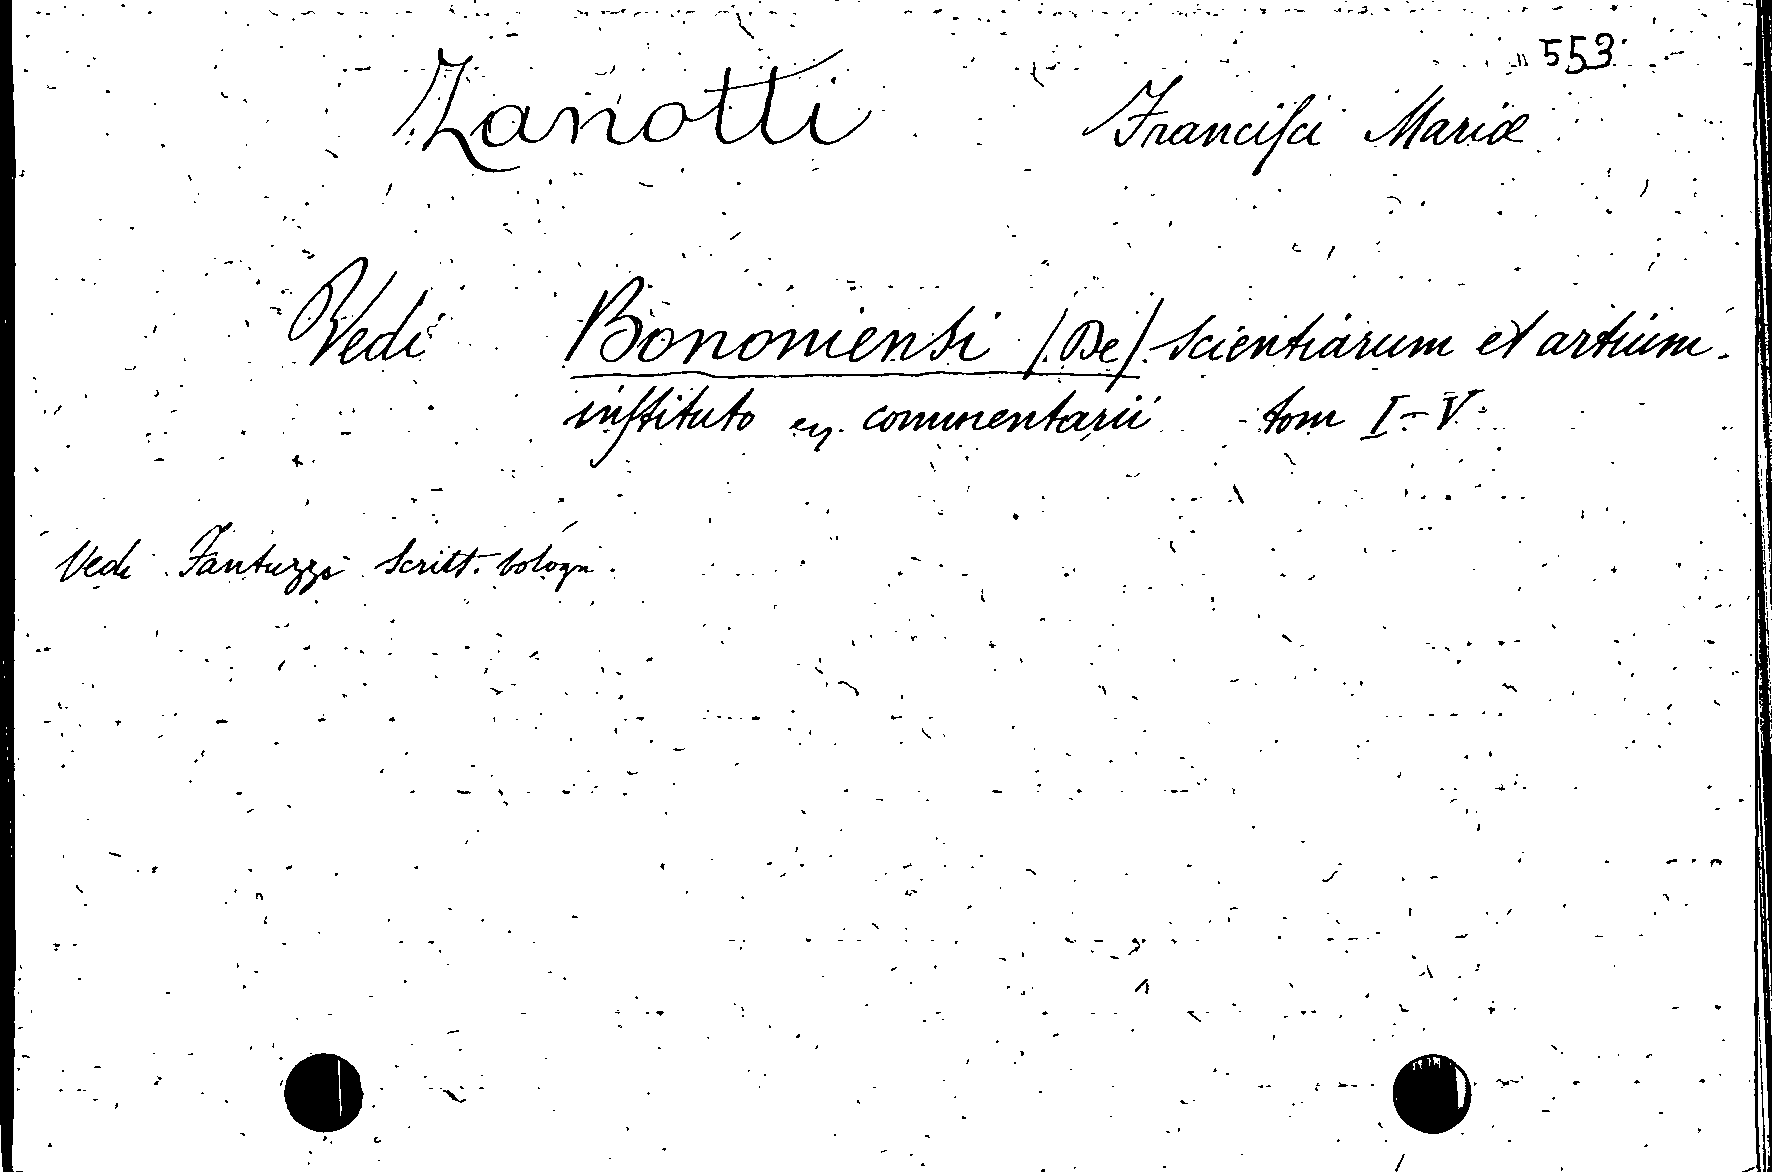 553
Zanotti Franciſci Mariæ
Vedi Bononiensi (De) scientiarum et artium
inſtituto commentarii tom I-V
Vedi Fantuzzi Scritt. bologn.